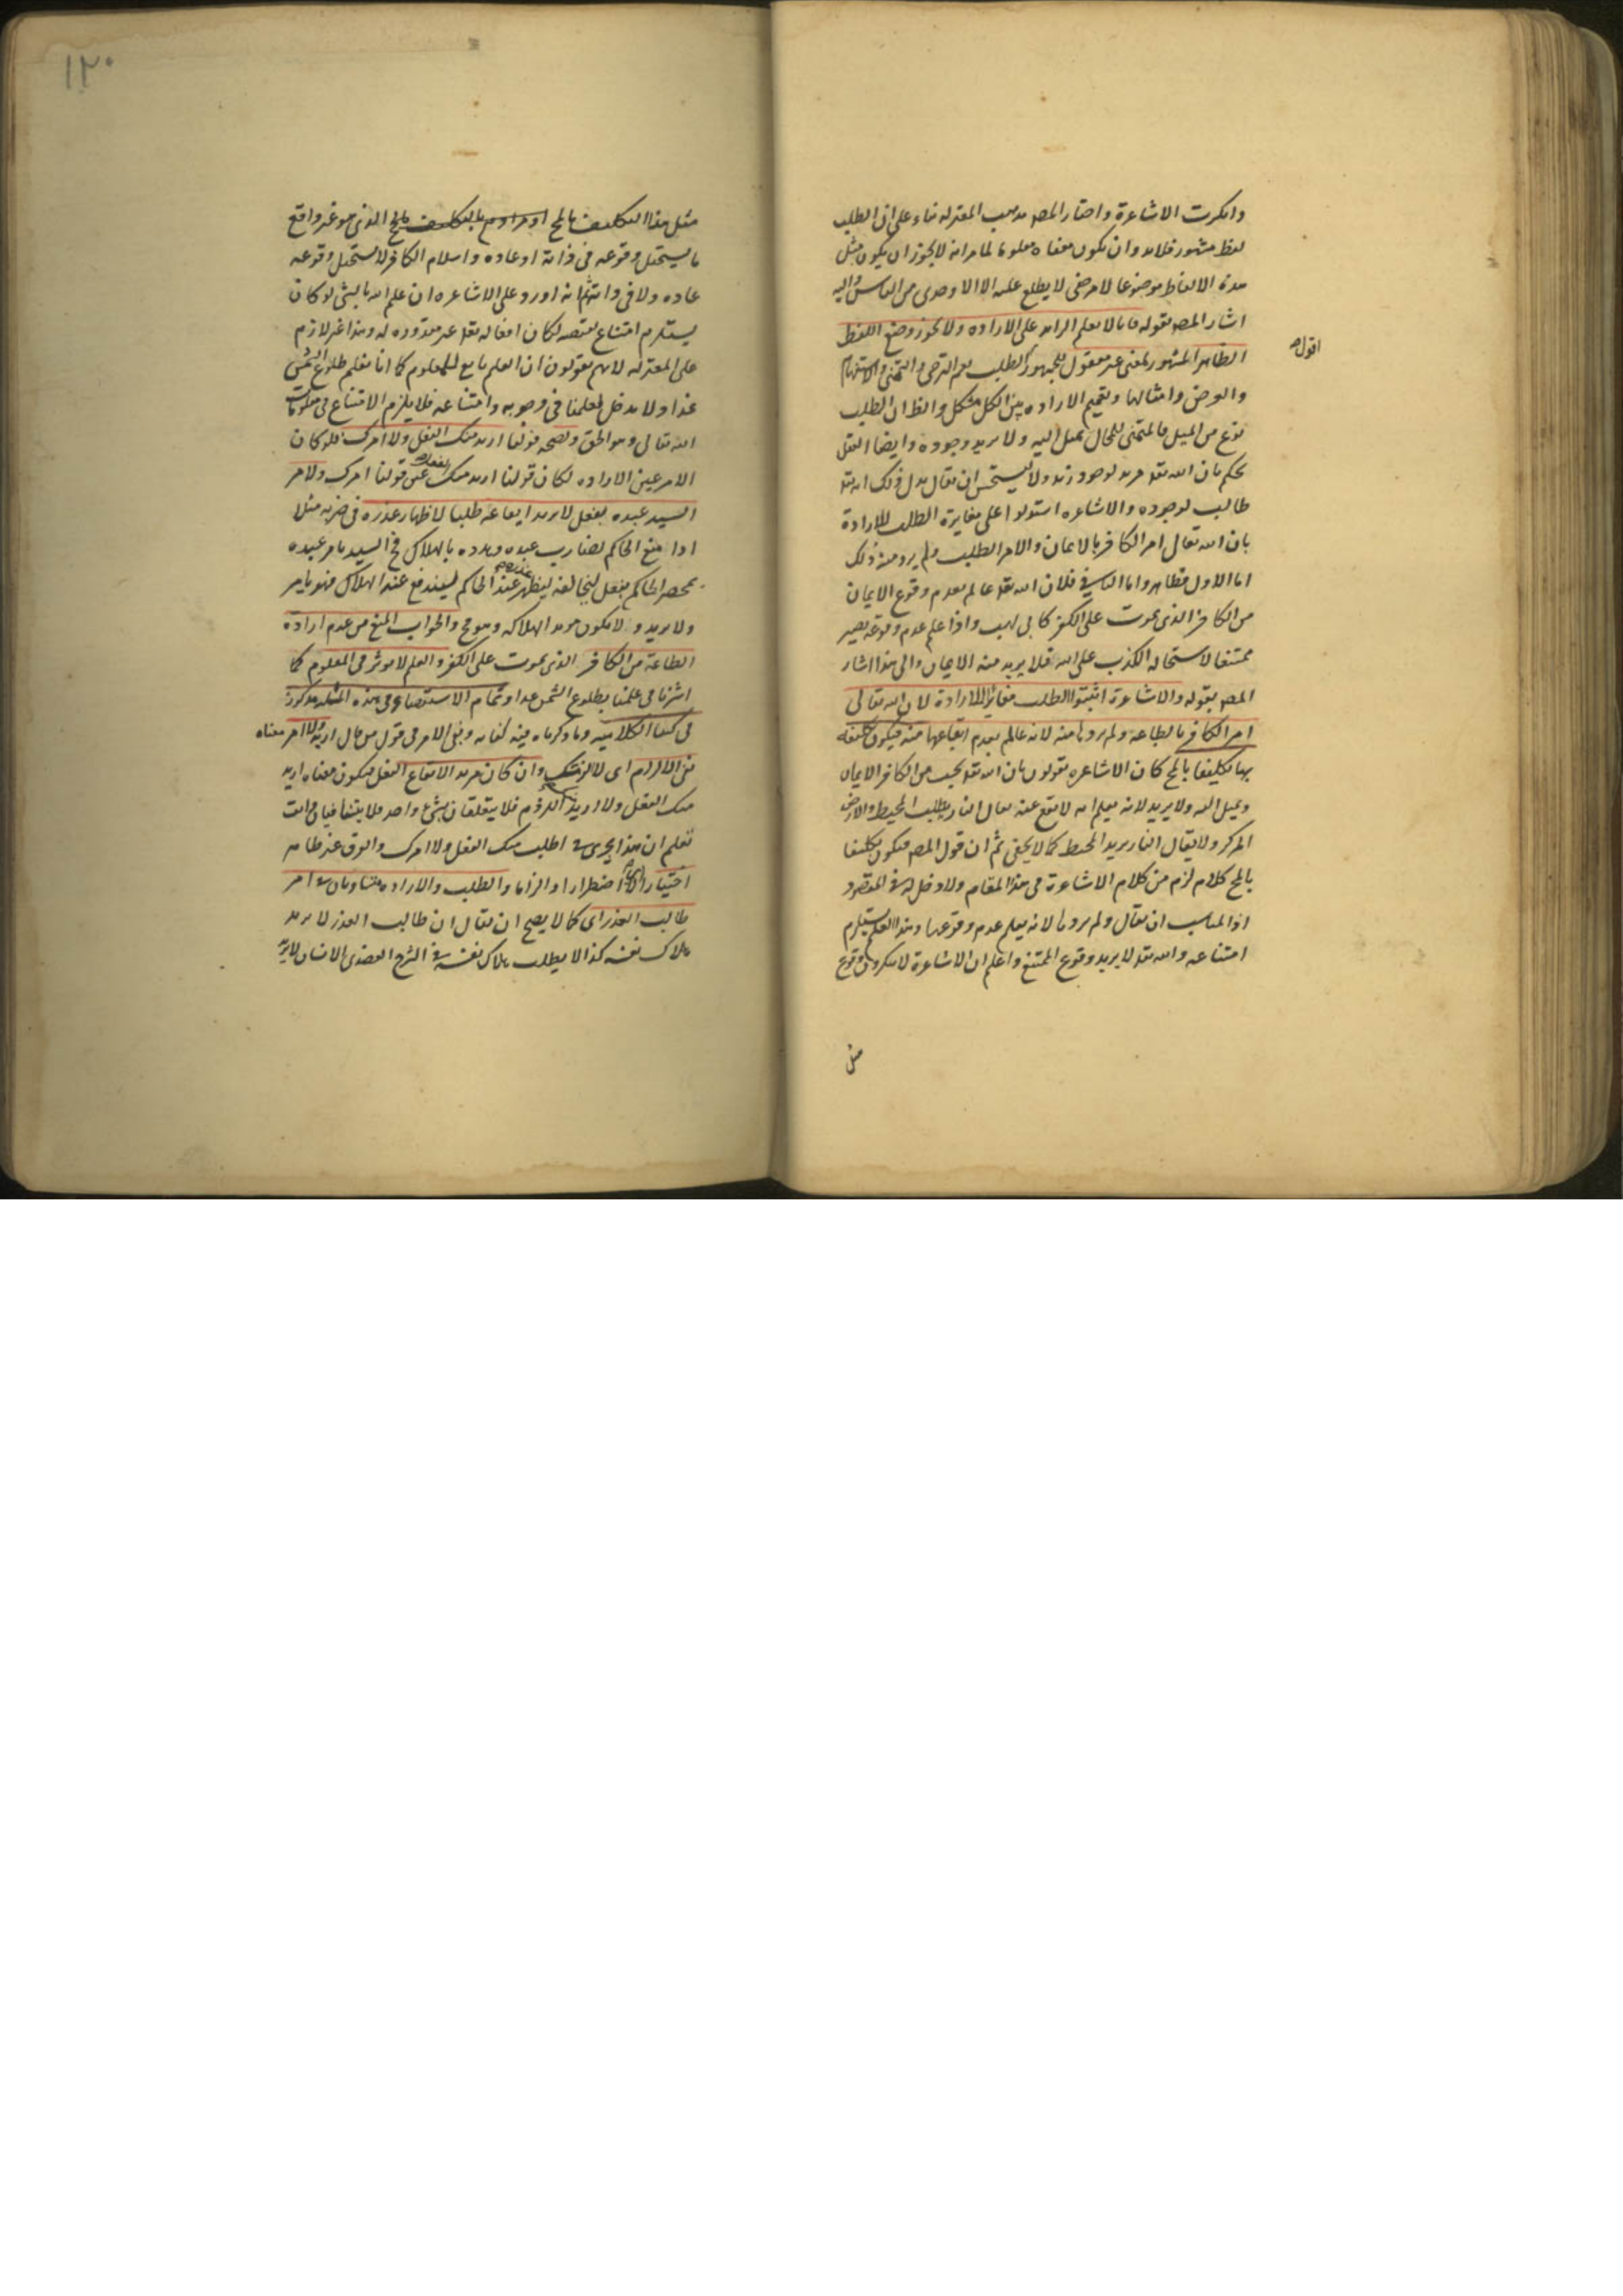 وانكرت الاشاعرة واختار المصـ مذهب المعتزله بناء على ان الطلب
لفظ مشهور فلابد وان يكون معناه معلوما لما مر انه لا يجوز ان يكون مثل
هذه الالفاظ موضوعا لامر خفى لا يطلع عليه الا الاوحدى من الناس واليه
اشار المصـ بقوله فانا لا نعلم الزايد على الاراده ولا يجوز وضع اللفظ
الظاهر المشهور لمعنى غير معقول للجمهور الطلب يعم الترجى والتمنى والاستفهام
اقول
والعرض وامثالها وتعميم الاراده بين الكل مشكل والظ ان الطلب
نوع من الميل فالمتمنى للمحال يميل اليه ولا يريد وجوده وايضا العقل
يحكم بان الله تعـ مريد لوجود زيد ولا يستحسن ان يقال بدل ذلك انه تعـ
طالب لوجوده والاشاعره استدلوا على مغايرة الطلب للارادة
بان الله تعالى امر الكافر بالايمان والامر الطلب ولم يرد منه ذلك
اما الاول فظاهر واما الثانى فلان الله تعـ عالم بعدم وقوع الايمان
من الكافر الذى يموت على الكفر كابى لهب واذا علم عدم وقوعه يصير
ممتنعا لاستحاله الكذب على الله فلا يريد منه الايمان والى هذا اشار
المصـ بقوله والاشاعرة اثبتوا الطلب مغايرا للارادة لان الله تعالى
امر الكافر بالطاعه ولم يردها منه لانه عالم بعدم ايقاعها منه فيكون تكليفه
بها تكليفا بالمح كان الاشاعره يقولون بان الله تعـ يحب من الكافر الايمان
ويميل اليه ولا يريد لانه يعلم انه لا يقع عنه يقال النار يطلب المحيط والارض
المركز ولا يقال النار يريد المحيط كما لا يخفى ثم ان قول المصـ فيكون تكليفا
بالمح كلام لزم من كلام الاشاعرة فى هذا المقام ولا دخل له فى المقصود
اذ المناسب ان يقال ولم يردها لانه يعلم عدم وقوعها وهذا العلم يستلزم
امتناعه والله تعـ لا يريد وقوع الممتنع واعلم ان الاشاعرة لا ينكرون وقوع
مثل
١٢٠
مثل هذا التكليف بالمح اومرادهم بالتكليف بالمح الذى هو غير واقع
ما يستحيل وقوعه فى ذاته او عاده واسلام الكافر لا يستحيل وقوعه
عاده ولا فى ذاته ثم انه اورد على الاشاعره ان علم الله بالشئ لو كان
يستلزم امتناع نقيضه لكان افعاله تعـ غير مقدوره له وهذا غير لازم
على المعتزله لانهم يقولون ان العلم تابع للمعلوم كما انا نعلم طلوع الشمس
غدا ولا مدخل لعلمنا فى وجوبه وامتناعه فلا يلزم الامتناع فى معلومات
الله تعالى وهو الحق ولصحه قولنا اريد منك الفعل ولا امرك فلو كان
الامر عين الاراده لكان قولنا اريد منك الفعل عين قولنا امرك ولامر
السيد عبده بفعل لا يريد ايقاعه طلبا لاظهار عذره فى ضربه مثلا
اذا منع الحاكم لضارب عبده وهدده بالهلاك فح السيد يامر عبده
بمحضر الحاكم بفعل ليخالفه ليظهر عذره عند الحاكم ليندفع عنه الهلاك فهو يامر
ولا يريد والا يكون مريدا لهلاكه وهو مح والجواب المنع من عدم ارادة
الطاعة من الكافر الذى يموت على الكفر والعلم لا موثر فى المعلوم كما
اشرنا فى علمنا بطلوع الشمس غدا وتمام الاستقصاء فى هذه المسئله مذكورة
فى كتبنا الكلاميه وما ذكرناه فيه كفايه ونفى الامر فى قول من قال اريد ولا امر معناه
نفى الالزام اى لا الزمتك وان كان مريدا لايقاع الفعل فيكون معناه اريد
منك الفعل ولا اريد اللزوم فلا يتعلقان بشئ واحد فلا يتنافيان وانت
تعلم ان هذا يجرى فى اطلب منك الفعل ولا امرك والفرق غير ظاهر
اختيارا اضطرارا او الزاما والطلب والاراده متساويان فى امر
طالب العذر اى كما لا يصح ان يقال ان طالب العذر لا يريد
هلاك نفسه كذا لا يطلب هلاك نفسه فى الشرح العضدى الانسان لا يريد